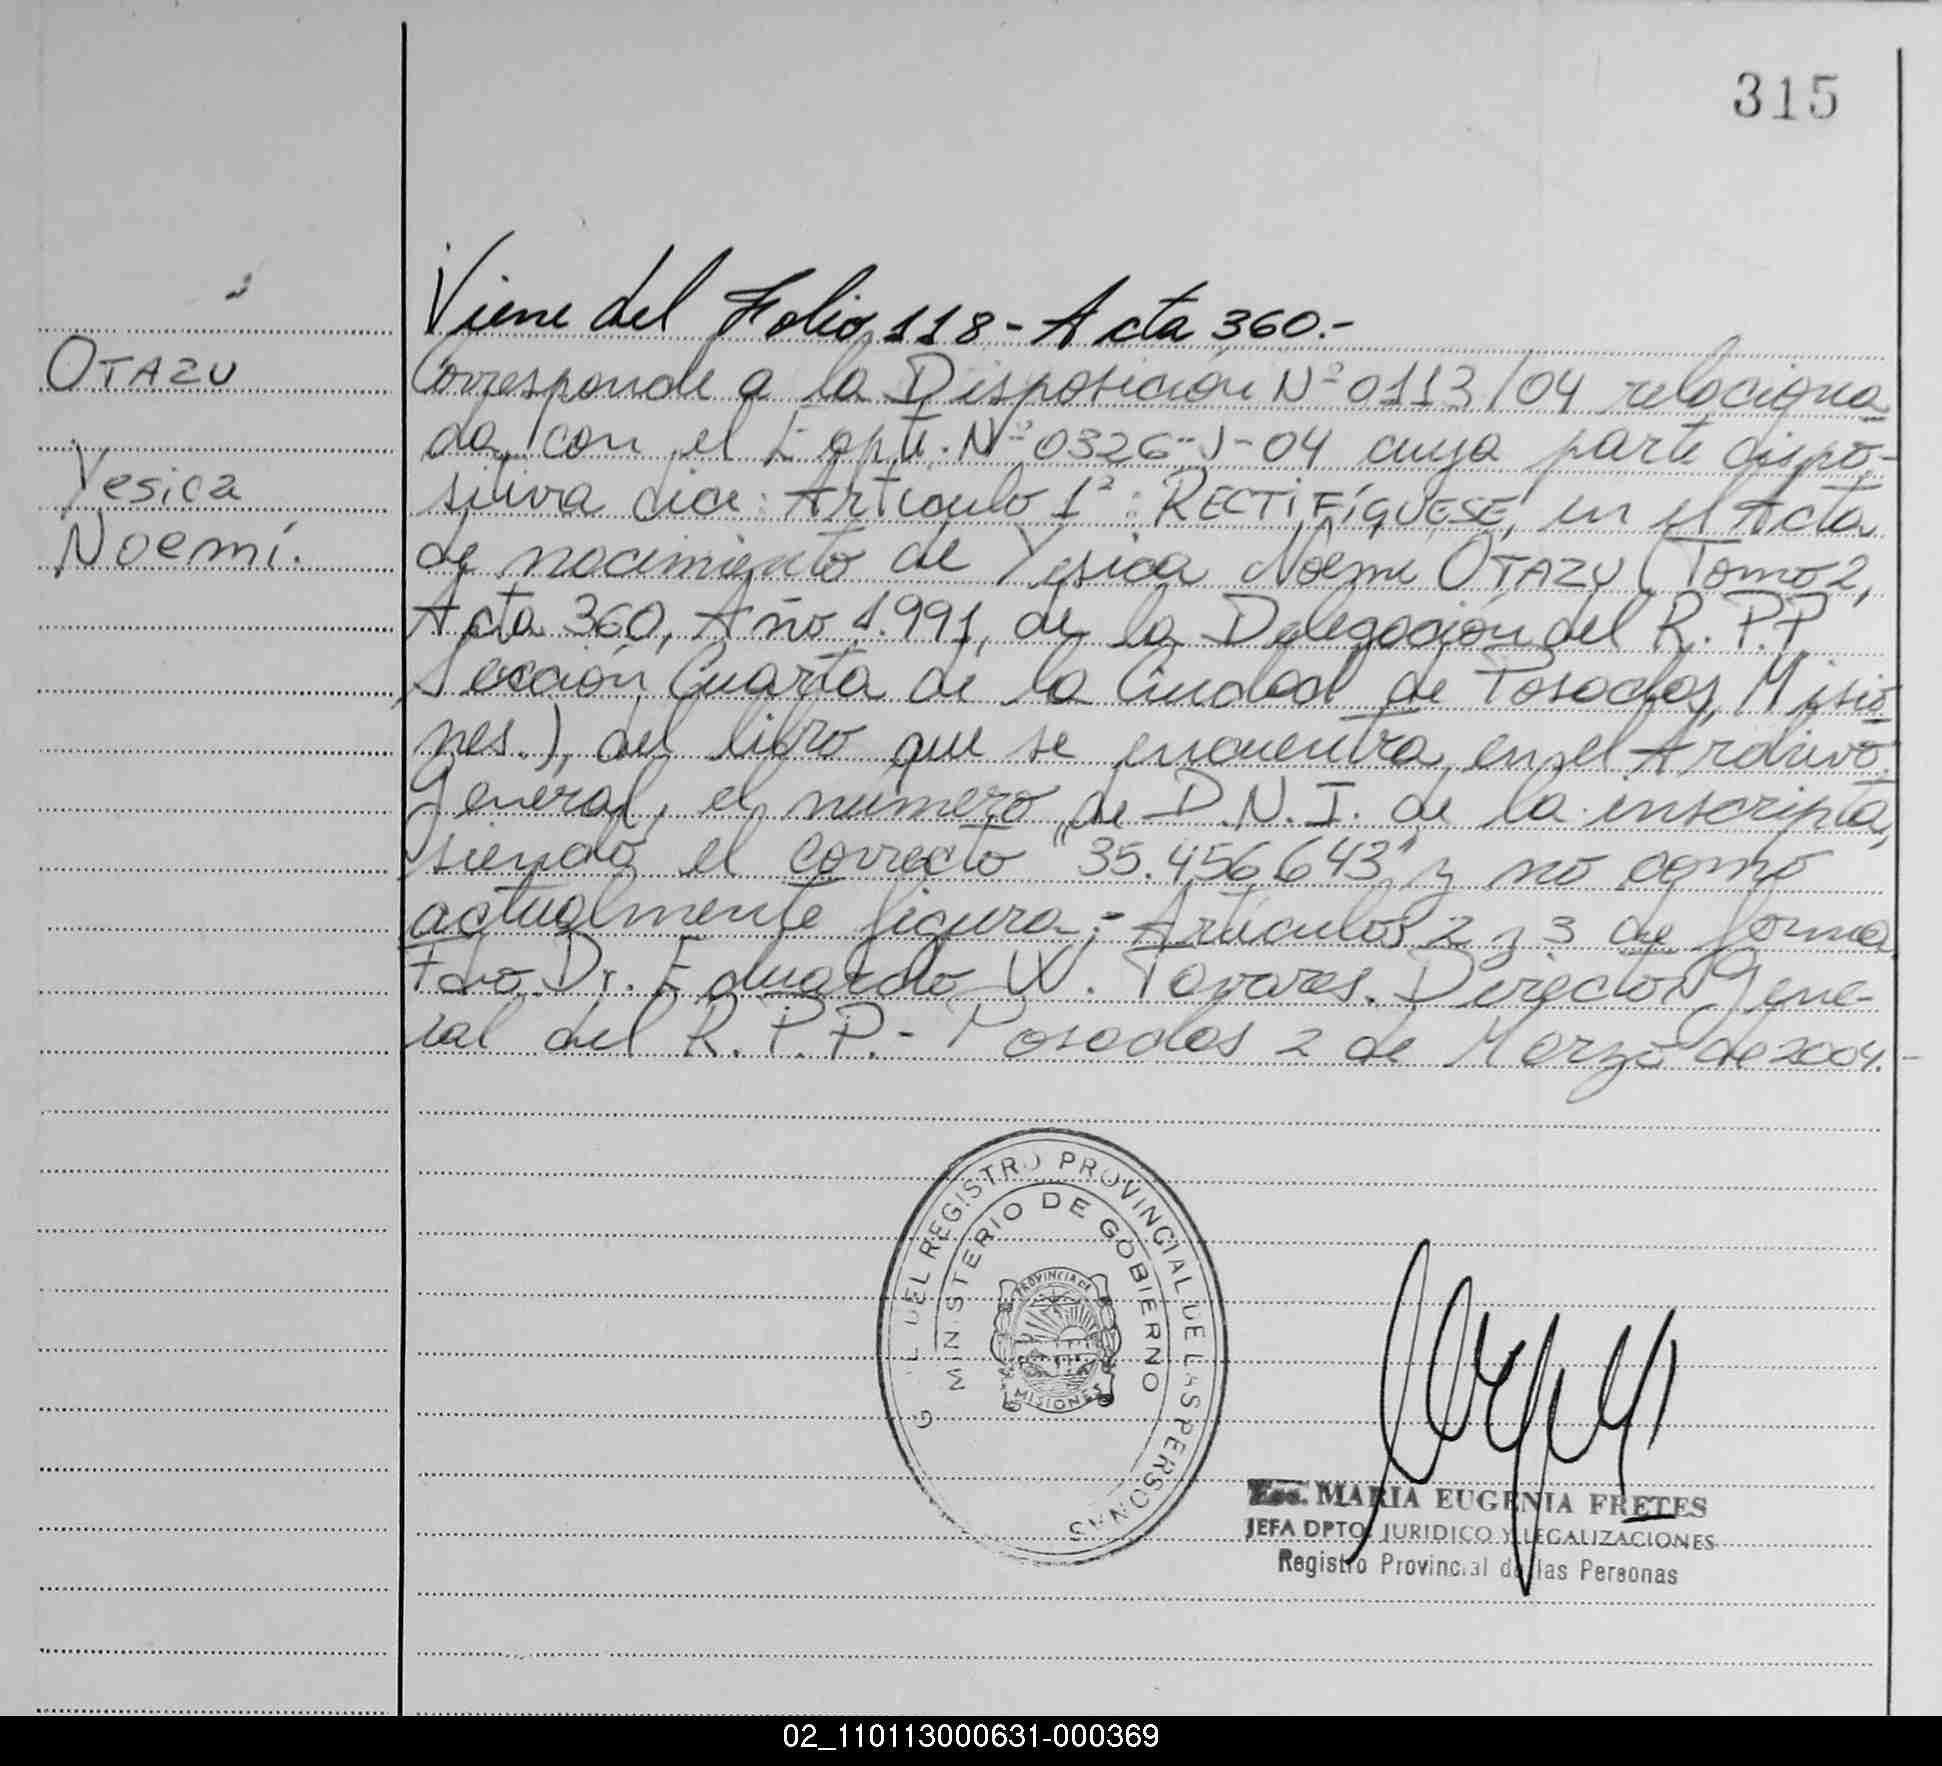 315
Viene del Folio 118 - Acta 360.-
OTAZU
Yesica
Noemí.
Corresponde a la Disposición Nº 0113/04 relaciona
da con el Expte. Nº 0326-J-04 cuya parte dispo-
sitiva dice: Artículo 1º: RECTIFÍQUESE, en el Acta
de nacimiento de Yesica Noemi OTAZU (Tomo 2,
Acta 360, Año 1.991, de la Delegación del R.P.P
Sección Cuarta de la Ciudad de Posadas, Misio
nes.), del libro que se encuentra en el Archivo
General, el número de D.N.I. de la inscripta,
siendo el correcto "35.456.643" y no como
actualmente figura.- Artículos 2 y 3 de forma
Fdo Dr. Eduardo W. Tavares. Director Gene-
ral del R.P.P.- Posadas 2 de Marzo de 2004.-
G L DEL REGISTRO PROVINCIAL DE LAS PERSONAS
MINISTERIO DE GOBIERNO
PROVINCIA DE
MISIONES
Esc. MARIA EUGENIA FRETES
JEFA DPTO. JURIDICO Y LEGALIZACIONES
Registro Provincial de las Personas
02_110113000631-000369